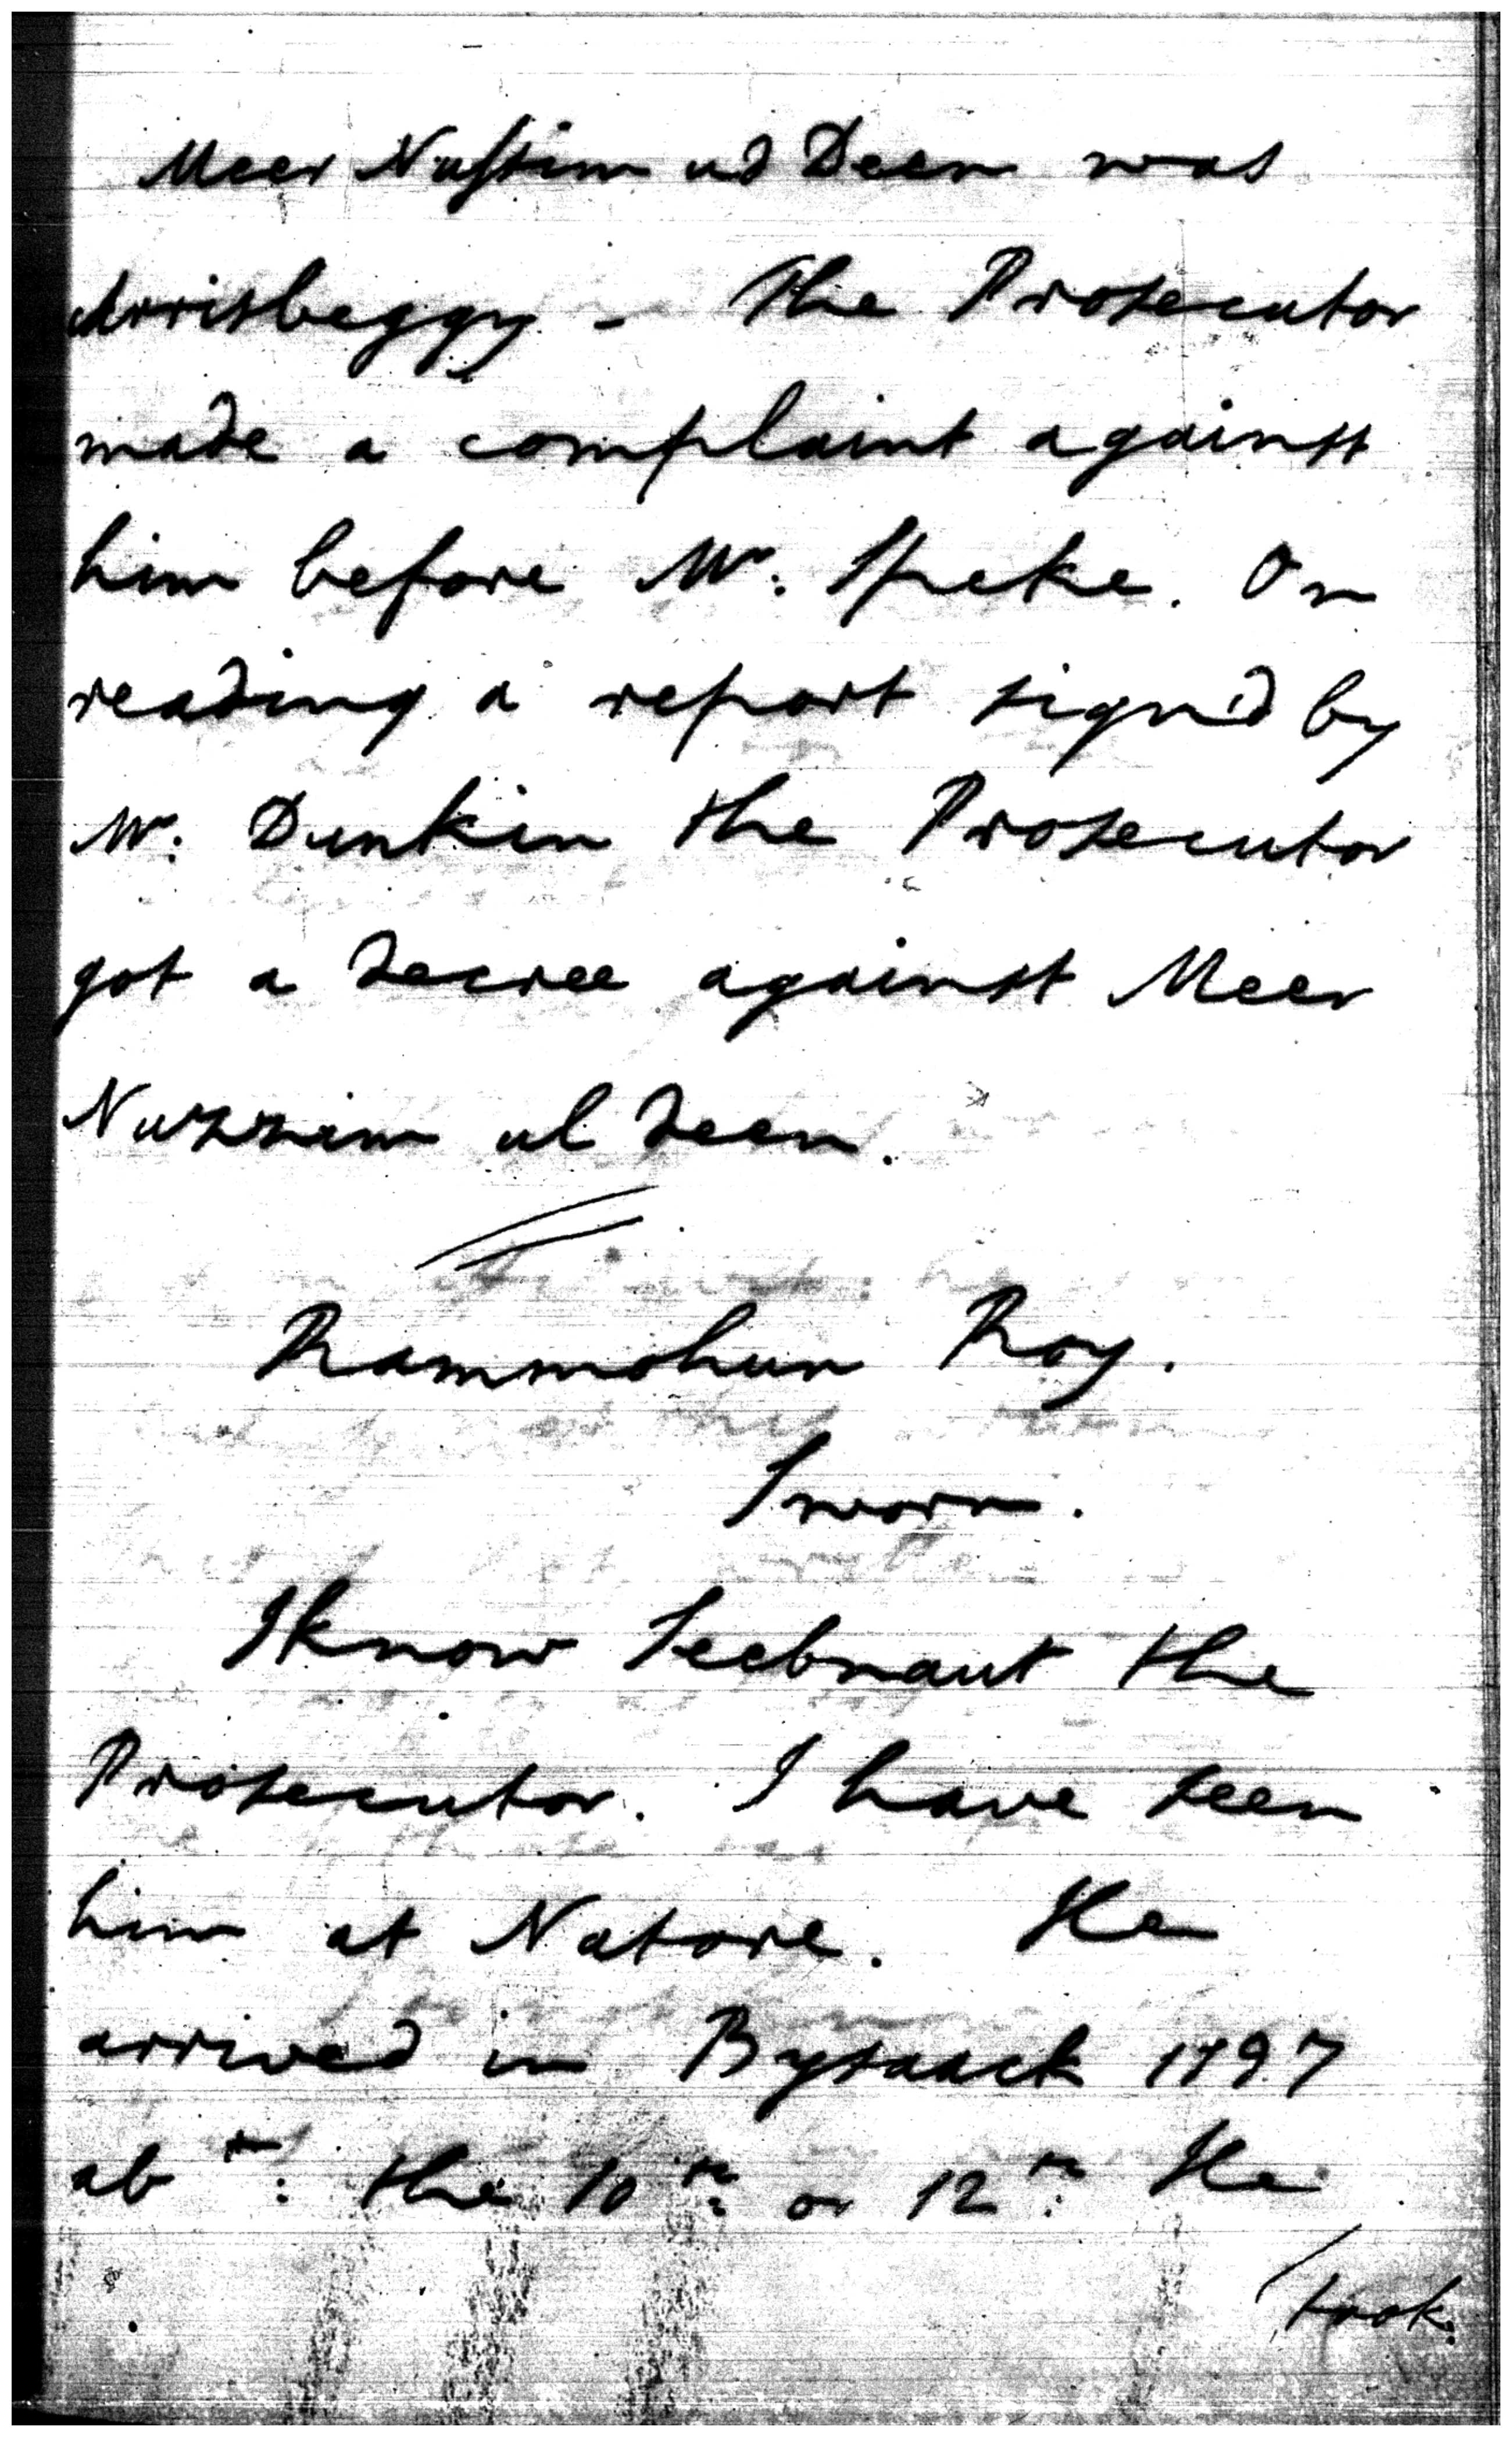 Meer Nussim ud Deen was
Arrisbeggy - The Prosecutor
made a complaint against
him before Mr. Speke. On
reading a report sign'd by
Mr. Dunkin the Prosecutor
got a decree against Meer
Nuzzim ul deen.
Rammohun Roy.
Sworn.
I know Seebnaut the
Prosecutor. I have seen
him at Natore. He
arrived in Bysaack 1797
abt: the 10th: or 12th: He
/took.